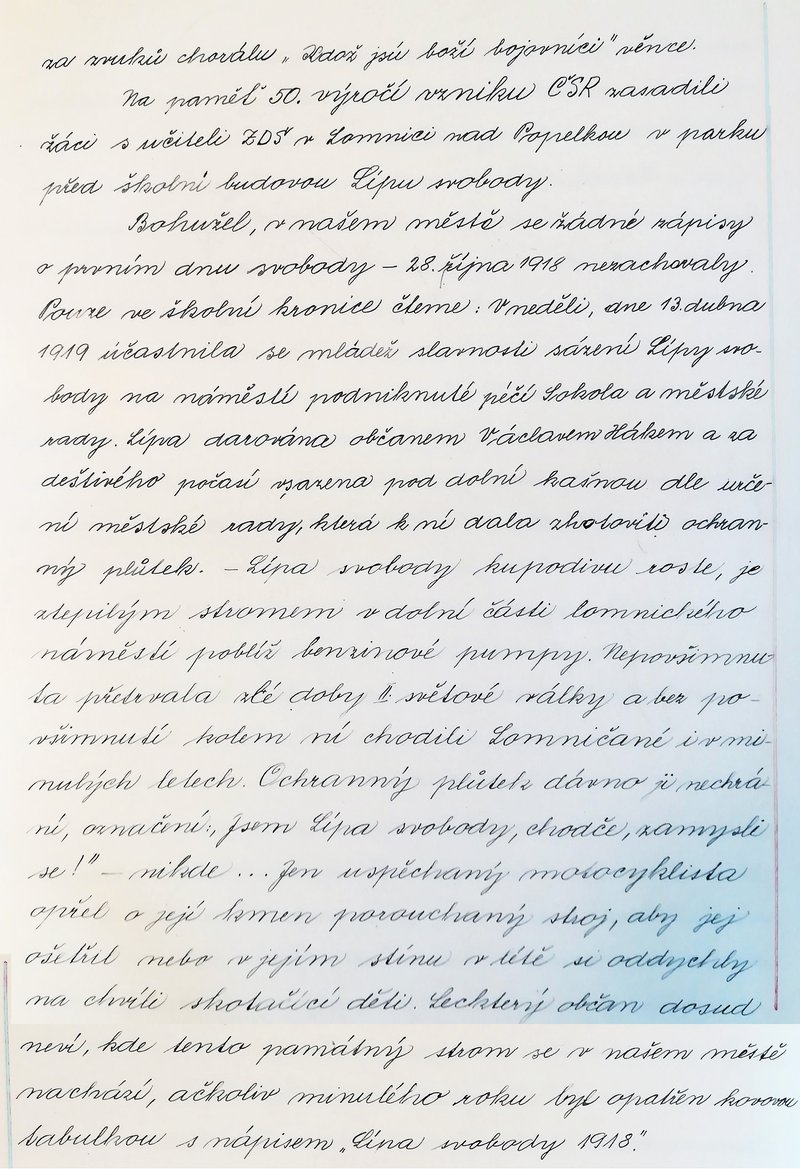 za zvuků chorálu „Kdož jsú boží bojovníci" věnce.
Na paměť 50. výročí vzniku ČSR zasadili
žáci s učiteli ZDŠ v Lomnici nad Popelkou v parku
před školní budovou Lípu svobody.
Bohužel, v našem městě se žádné zápisy
o prvním dnu svobody – 28. října 1918 nezachovaly.
Pouze ve školní kronice čteme: V neděli, dne 13. dubna
1919 účastnila se mládež slavnosti sázení Lípy svo-
body na náměstí podniknuté péčí Sokola a městské
rady. Lípa darována občanem Václavem Hákem a za
deštivého počasí vsazena pod dolní kašnou dle urče-
ní městské rady, která k ní dala zhotoviti ochran-
ný plůtek. – Lípa svobody kupodivu roste, je
ztepilým stromem v dolní části lomnického
náměstí poblíž benzinové pumpy. Nepovšimnu-
ta přetrvala zlé doby II. světové války a bez po-
všimnutí kolem ní chodili Lomničané i v mi-
nulých letech. Ochranný plůtek dávno ji nechrá-
ní, označení: „Jsem Lípa svobody, chodče, zamysli
se!" – nikde ... Jen uspěchaný motocyklista
opřel o její kmen porouchaný stroj, aby jej
ošetřil nebo v jejím stínu v létě si oddychly
na chvíli skotačící děti. Leckterý občan dosud
neví, kde tento památný strom se v našem městě
nachází, ačkoliv minulého roku byl opatřen kovovou
tabulkou s nápisem „Lípa svobody 1918".